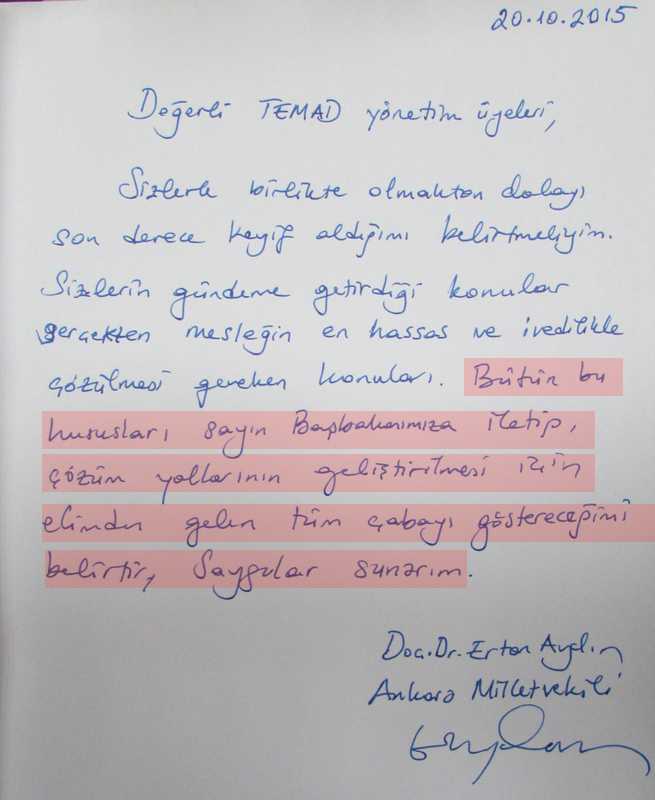 20.10.2015
Değerli TEMAD yönetim üyeleri,
Sizlerle birlikte olmaktan dolayı
son derece keyif aldığımı belirtmeliyim.
Sizlerin gündeme getirdiği konular
gerçekten mesleğin en hassas ve ivedilikle
çözülmesi gereken konuları. Bütün bu
hususları sayın Başbakanımıza iletip,
çözüm yollarının geliştirilmesi için
elimden gelen tüm çabayı göstereceğimi
belirtir, Saygılar sunarım.
Doç.Dr. Ertan Aydın
Ankara Milletvekili